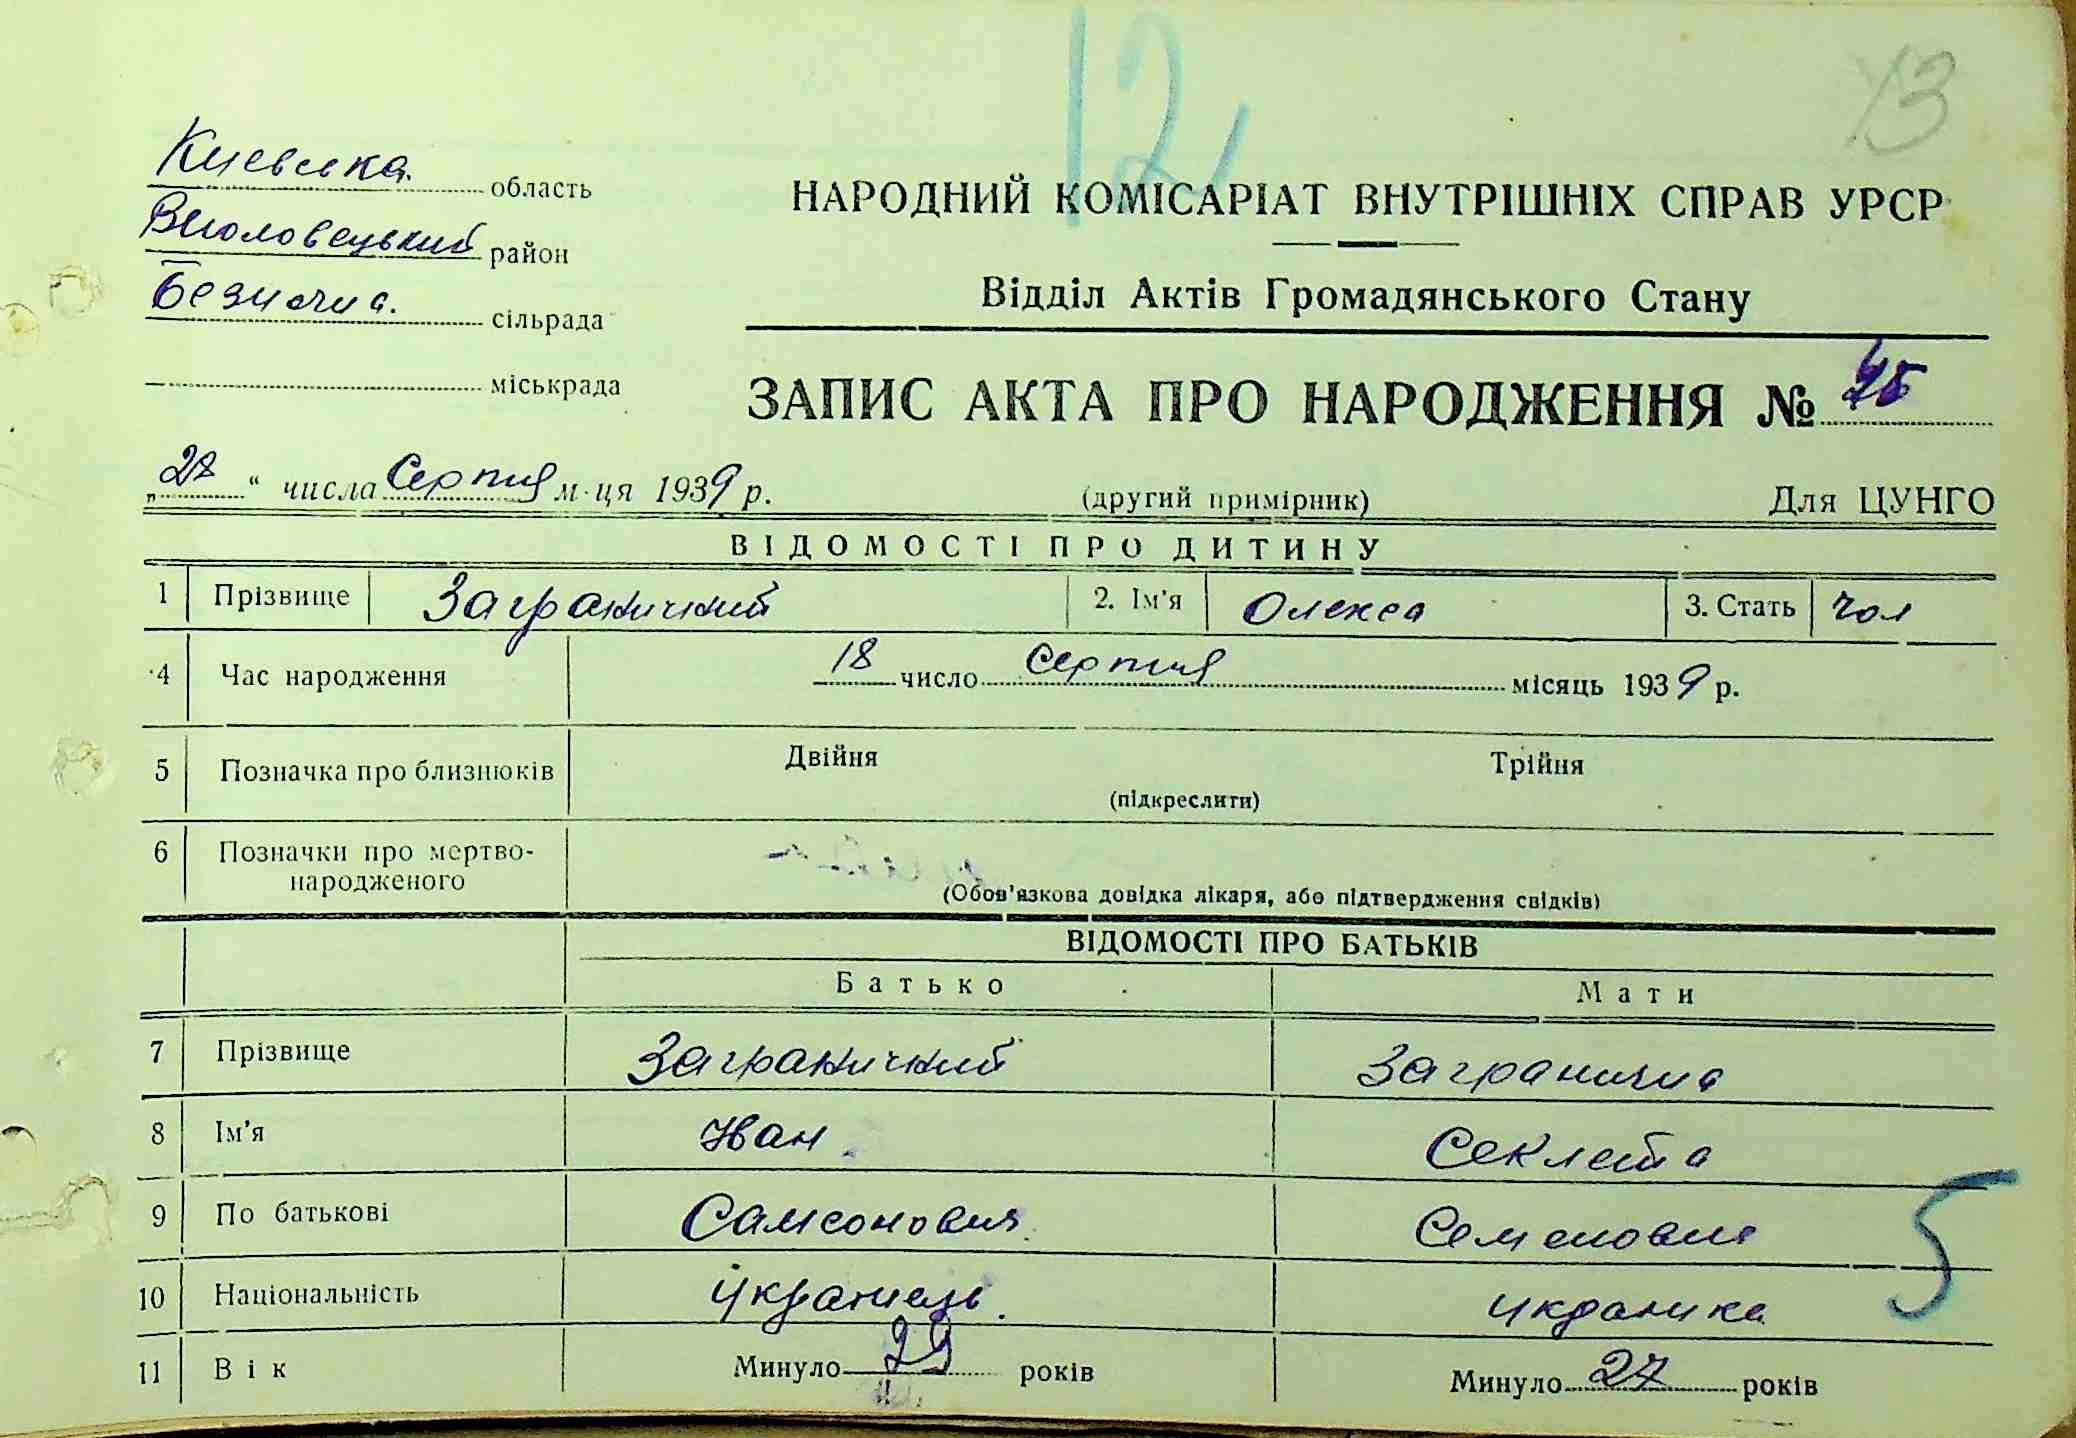 12
13
Києвська область
НАРОДНИЙ КОМІСАРІАТ ВНУТРІШНІХ СПРАВ УРСР
район
Відділ Актів Громадянського Стану
сільрада
міськрада
ЗАПИС АКТА ПРО НАРОДЖЕННЯ № 45
„27“ числа Серпня м-ця 1939 р.
(другий примірник)
Для ЦУНГО
ВІДОМОСТІ ПРО ДИТИНУ
1 Прізвище Заграничний 2. Ім'я Олекса 3. Стать чол
4 Час народження 18 число Серпня місяць 1939 р.
5 Позначка про близнюків Двійня Трійня
(підкреслити)
6 Позначки про мертво-
народженого
(Обов'язкова довідка лікаря, або підтвердження свідків)
ВІДОМОСТІ ПРО БАТЬКІВ
Батько Мати
7 Прізвище Заграничний Загранична
8 Ім'я Иван Секлета
9 По батькові Самсонович Семеновна
5
10 Національність украинець украинка
11 Вік Минуло 29 років Минуло 27 років